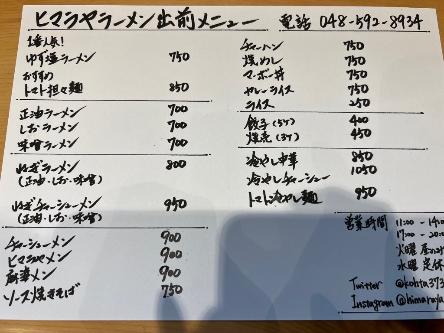 ヒマラヤラーメン出前メニュー 電話 048-592-8934
1番人気!
ゆず塩ラーメン 750
おすすめ
トマト担々麺 850
正油ラーメン 700
しおラーメン 700
味噌ラーメン 700
ねぎラーメン 800
(正油・しお・味噌)
ねぎチャーシューメン 950
(正油・しお・味噌)
チャーシューメン 900
ヒマラヤメン 900
麻婆メン 900
ソース焼きそば 750
チャーハン 750
焼めし 750
マーボー丼 750
カレーライス 750
ライス 250
餃子(5ケ) 400
焼売(3ケ) 450
冷やし中華 850
冷やしチャーシュー 1050
トマト冷やし麺 950
営業時間 11:00 - 14:0
17:00 - 20:0
火曜 昼のみ
水曜 定休
Twitter @kohta373
Instagram @himaraya